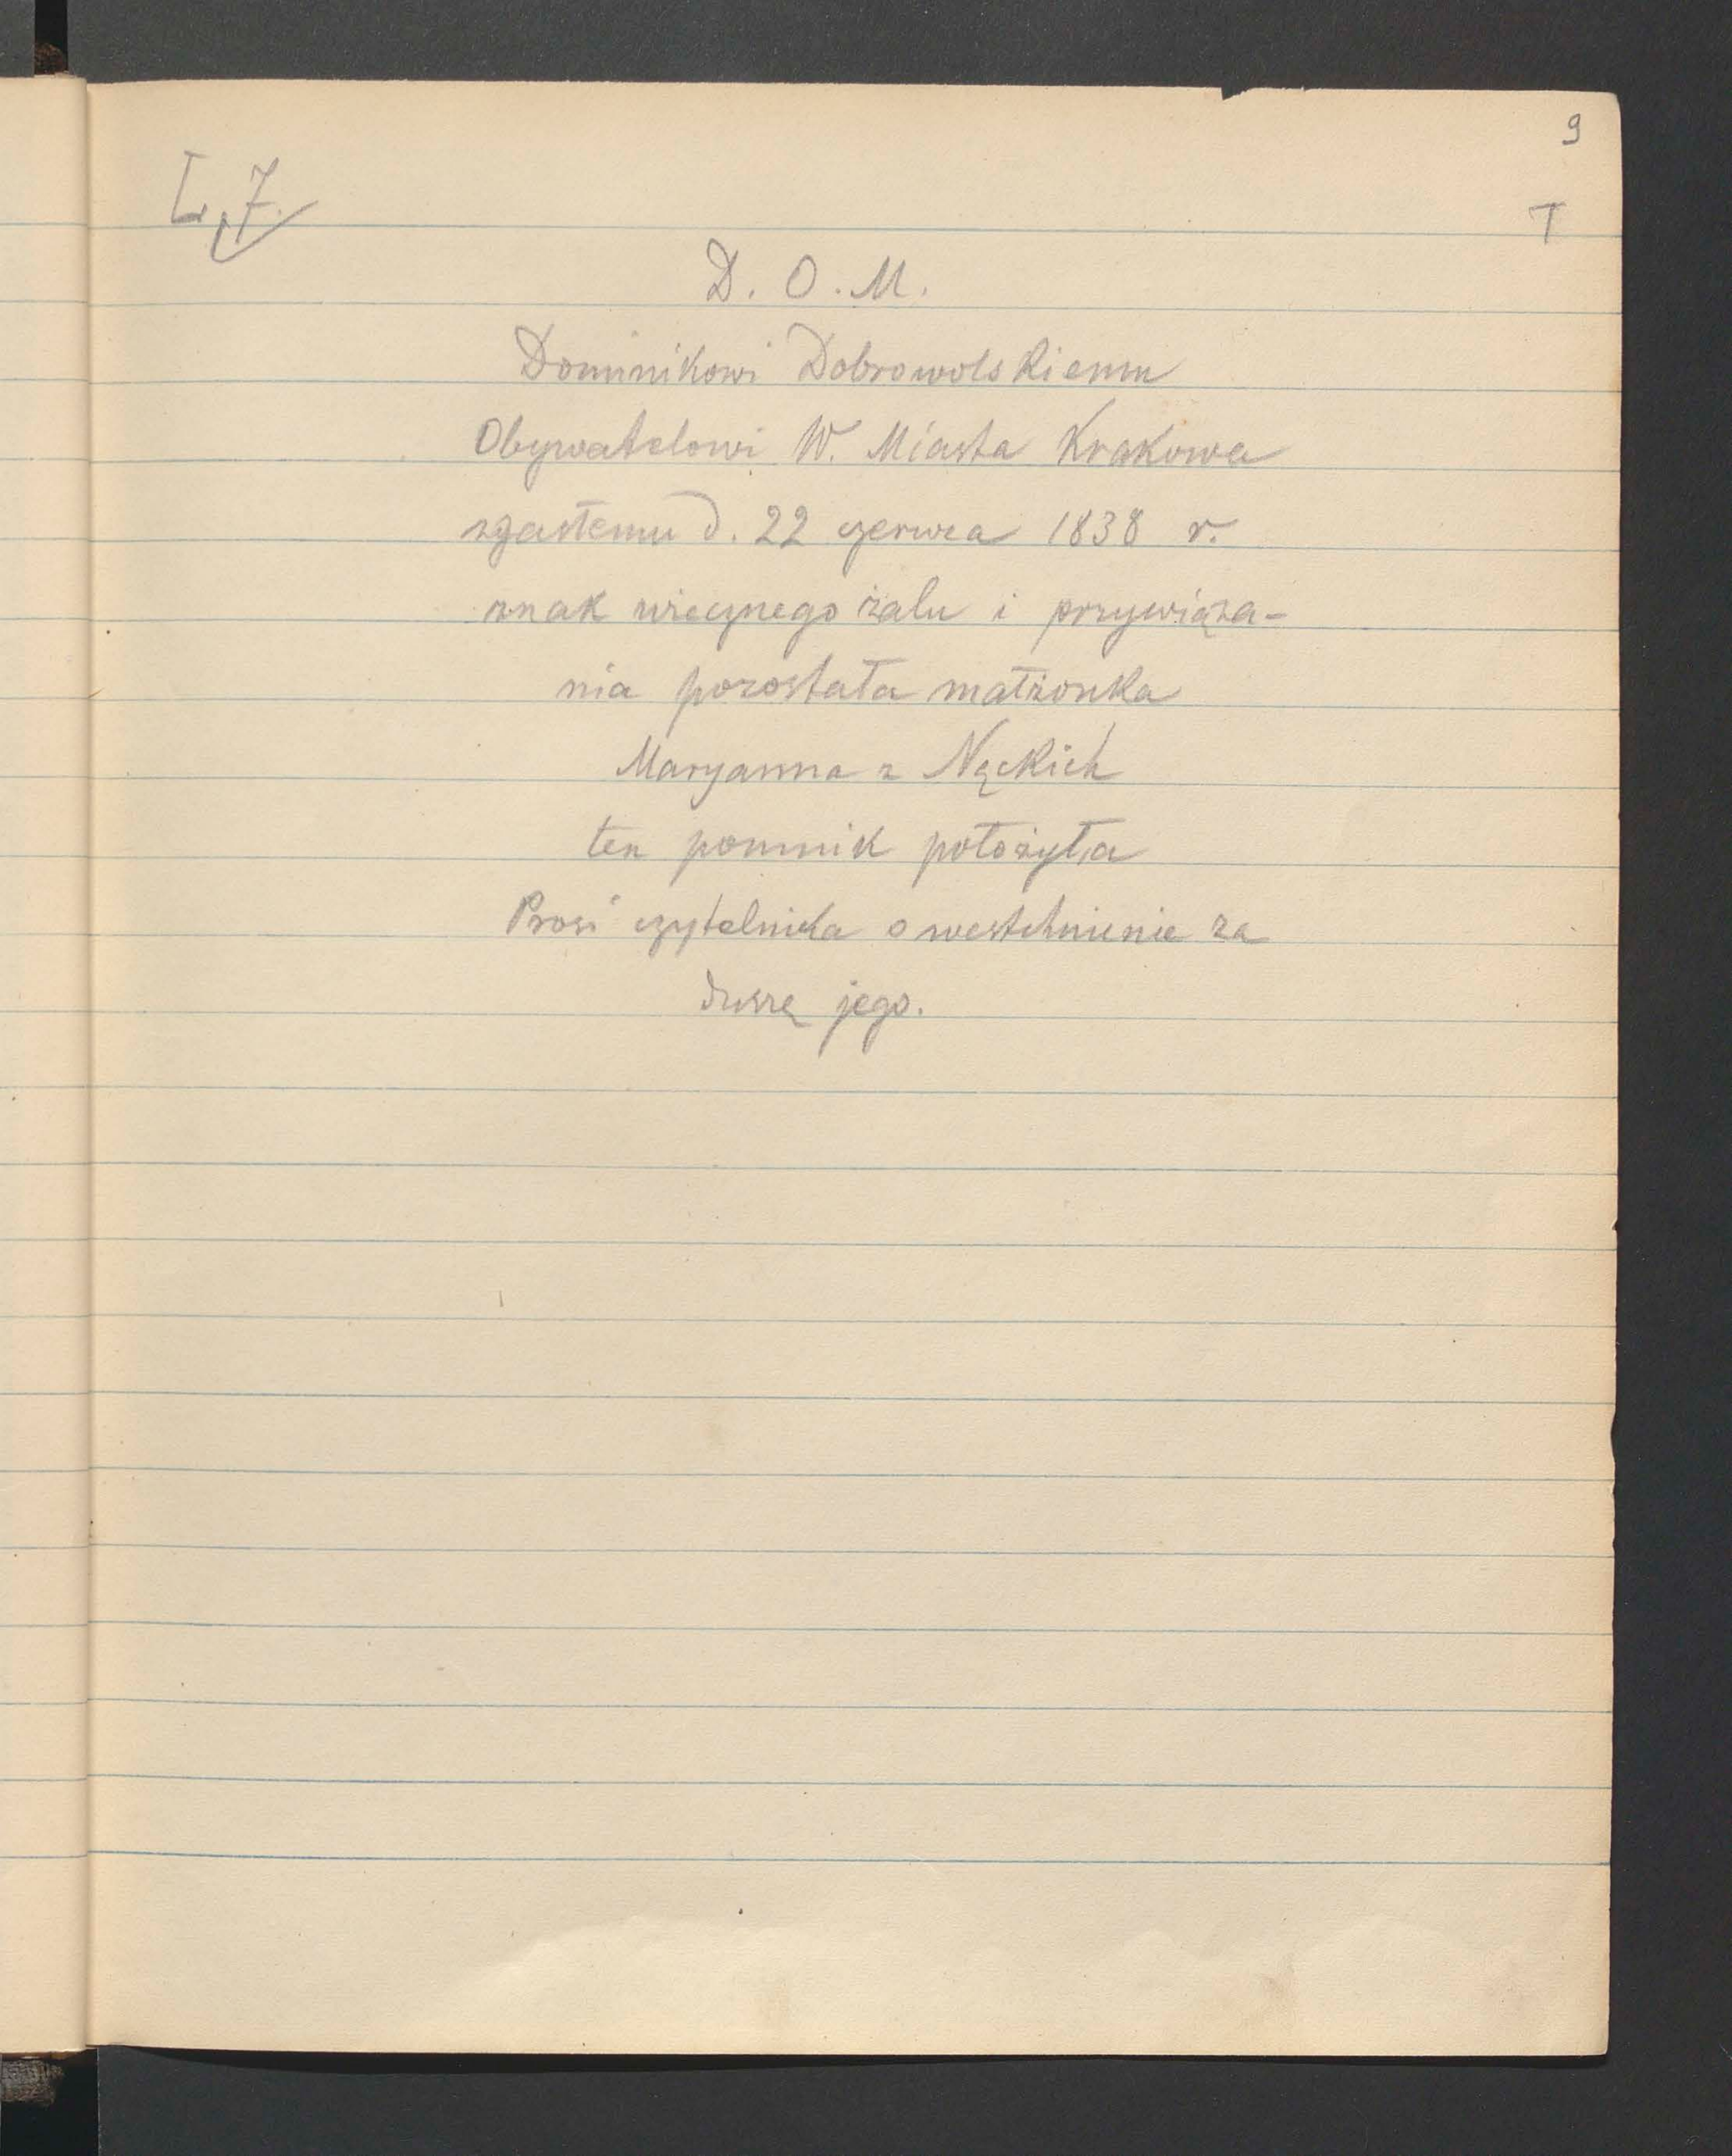 9
L. 7.
T
D. O. M.
Dominikowi Dobrowolskiemu
Obywatelowi W. Miasta Krakowa
zgasłemu d. 22 czerwca 1838 r.
znak wiecznego żalu i przywiąza-
nia pozostała małżonka
Maryanna z Nęckich
ten pomnik położyła
Prosi czytelnika o westchnienie za
duszę jego.